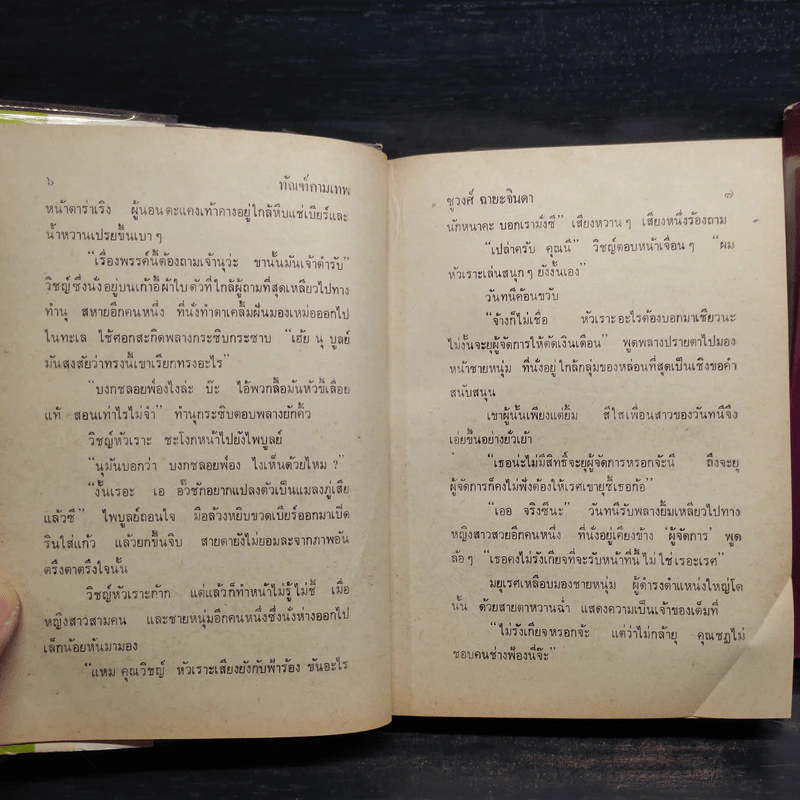 ๖ ทัณฑ์กามเทพ
หน้าตาร่าเริง ผู้นอนตะแคงเท้าคางอยู่ใกล้หีบแช่เบียร์และ
น้ำหวานเปรยขึ้นเบา ๆ
“เรื่องพรรค์นี้ต้องถามเจ้านุว่ะ ขานั้นมันเจ้าตำรับ”
วิชญ์ซึ่งนั่งอยู่บนเก้าอี้ผ้าใบตัวที่ใกล้ผู้ถามที่สุดเหลียวไปทาง
ทำนุ สหายอีกคนหนึ่ง ที่นั่งทำตาเคลิ้มฝันมองเหม่อออกไป
ในทะเล ใช้ศอกสะกิดพลางกระซิบกระซาบ “เฮ้ย นุ บูลย์
มันสงสัยว่าทรงนี้เขาเรียกทรงอะไร”
“บงกชลอยฟ่องไงล่ะ บ๊ะ ไอ้พวกลื้อมันหัวขี้เลื่อย
แท้ สอนเท่าไรไม่จำ” ทำนุกระซิบตอบพลางยักคิ้ว
วิชญ์หัวเราะ ชะโงกหน้าไปยังไพบูลย์
“นุมันบอกว่า บงกชลอยฟ่อง ไงเห็นด้วยไหม ?”
“งั้นเรอะ เอ อั๊วชักอยากแปลงตัวเป็นแมลงภู่เสีย
แล้วซี” ไพบูลย์ถอนใจ มือล้วงหยิบขวดเบียร์ออกมาเปิด
รินใส่แก้ว แล้วยกขึ้นจิบ สายตายังไม่ยอมละจากภาพอัน
ตรึงตาตรึงใจนั้น
วิชญ์หัวเราะก๊าก แต่แล้วก็ทำหน้าไม่รู้ไม่ชี้ เมื่อ
หญิงสาวสามคน และชายหนุ่มอีกคนหนึ่งซึ่งนั่งห่างออกไป
เล็กน้อยหันมามอง
“แหม คุณวิชญ์ หัวเราะเสียงยังกับฟ้าร้อง ขันอะไร
ชูวงศ์ ฉายะจินดา ๗
นักหนาคะ บอกเรามั่งซี” เสียงหวาน ๆ เสียงหนึ่งร้องถาม
“เปล่าครับ คุณนี” วิชญ์ตอบหน้าเจื่อน ๆ “ผม
หัวเราะเล่นสนุก ๆ ยังงั้นเอง”
วันทนีค้อนขวับ
“จ้างก็ไม่เชื่อ หัวเราะอะไรต้องบอกมาเชียวนะ
ไม่งั้นจะยุผู้จัดการให้ตัดเงินเดือน” พูดพลางปรายตาไปมอง
หน้าชายหนุ่ม ที่นั่งอยู่ใกล้กลุ่มของหล่อนที่สุดเป็นเชิงขอคำ
สนับสนุน
เขาผู้นั้นเพียงแต่ยิ้ม สีใสเพื่อนสาวของวันทนีจึง
เอ่ยขึ้นอย่างยั่วเย้า
“เธอน่ะไม่มีสิทธิ์จะยุผู้จัดการหรอกจ้ะนี ถึงจะยุ
ผู้จัดการก็คงไม่ฟังต้องให้เรศเขายุซี้เธอก้อ”
“เออ จริงซีนะ” วันทนีรับพลางยิ้มเหลียวไปทาง
หญิงสาวสวยอีกคนหนึ่ง ที่นั่งอยู่เคียงข้าง ‘ผู้จัดการ’ พูด
ล้อ ๆ “เธอคงไม่รังเกียจที่จะรับหน้าที่นี้ ไม่ใช่เรอะเรศ”
มยุเรศเหลือบมองชายหนุ่ม ผู้ดำรงตำแหน่งใหญ่โต
นั้น ด้วยสายตาหวานฉ่ำ แสดงความเป็นเจ้าของเต็มที่
“ไม่รังเกียจหรอกจ้ะ แต่ว่าไม่กล้ายุ คุณชฎไม่
ชอบคนช่างฟ้องนี่จ๊ะ”